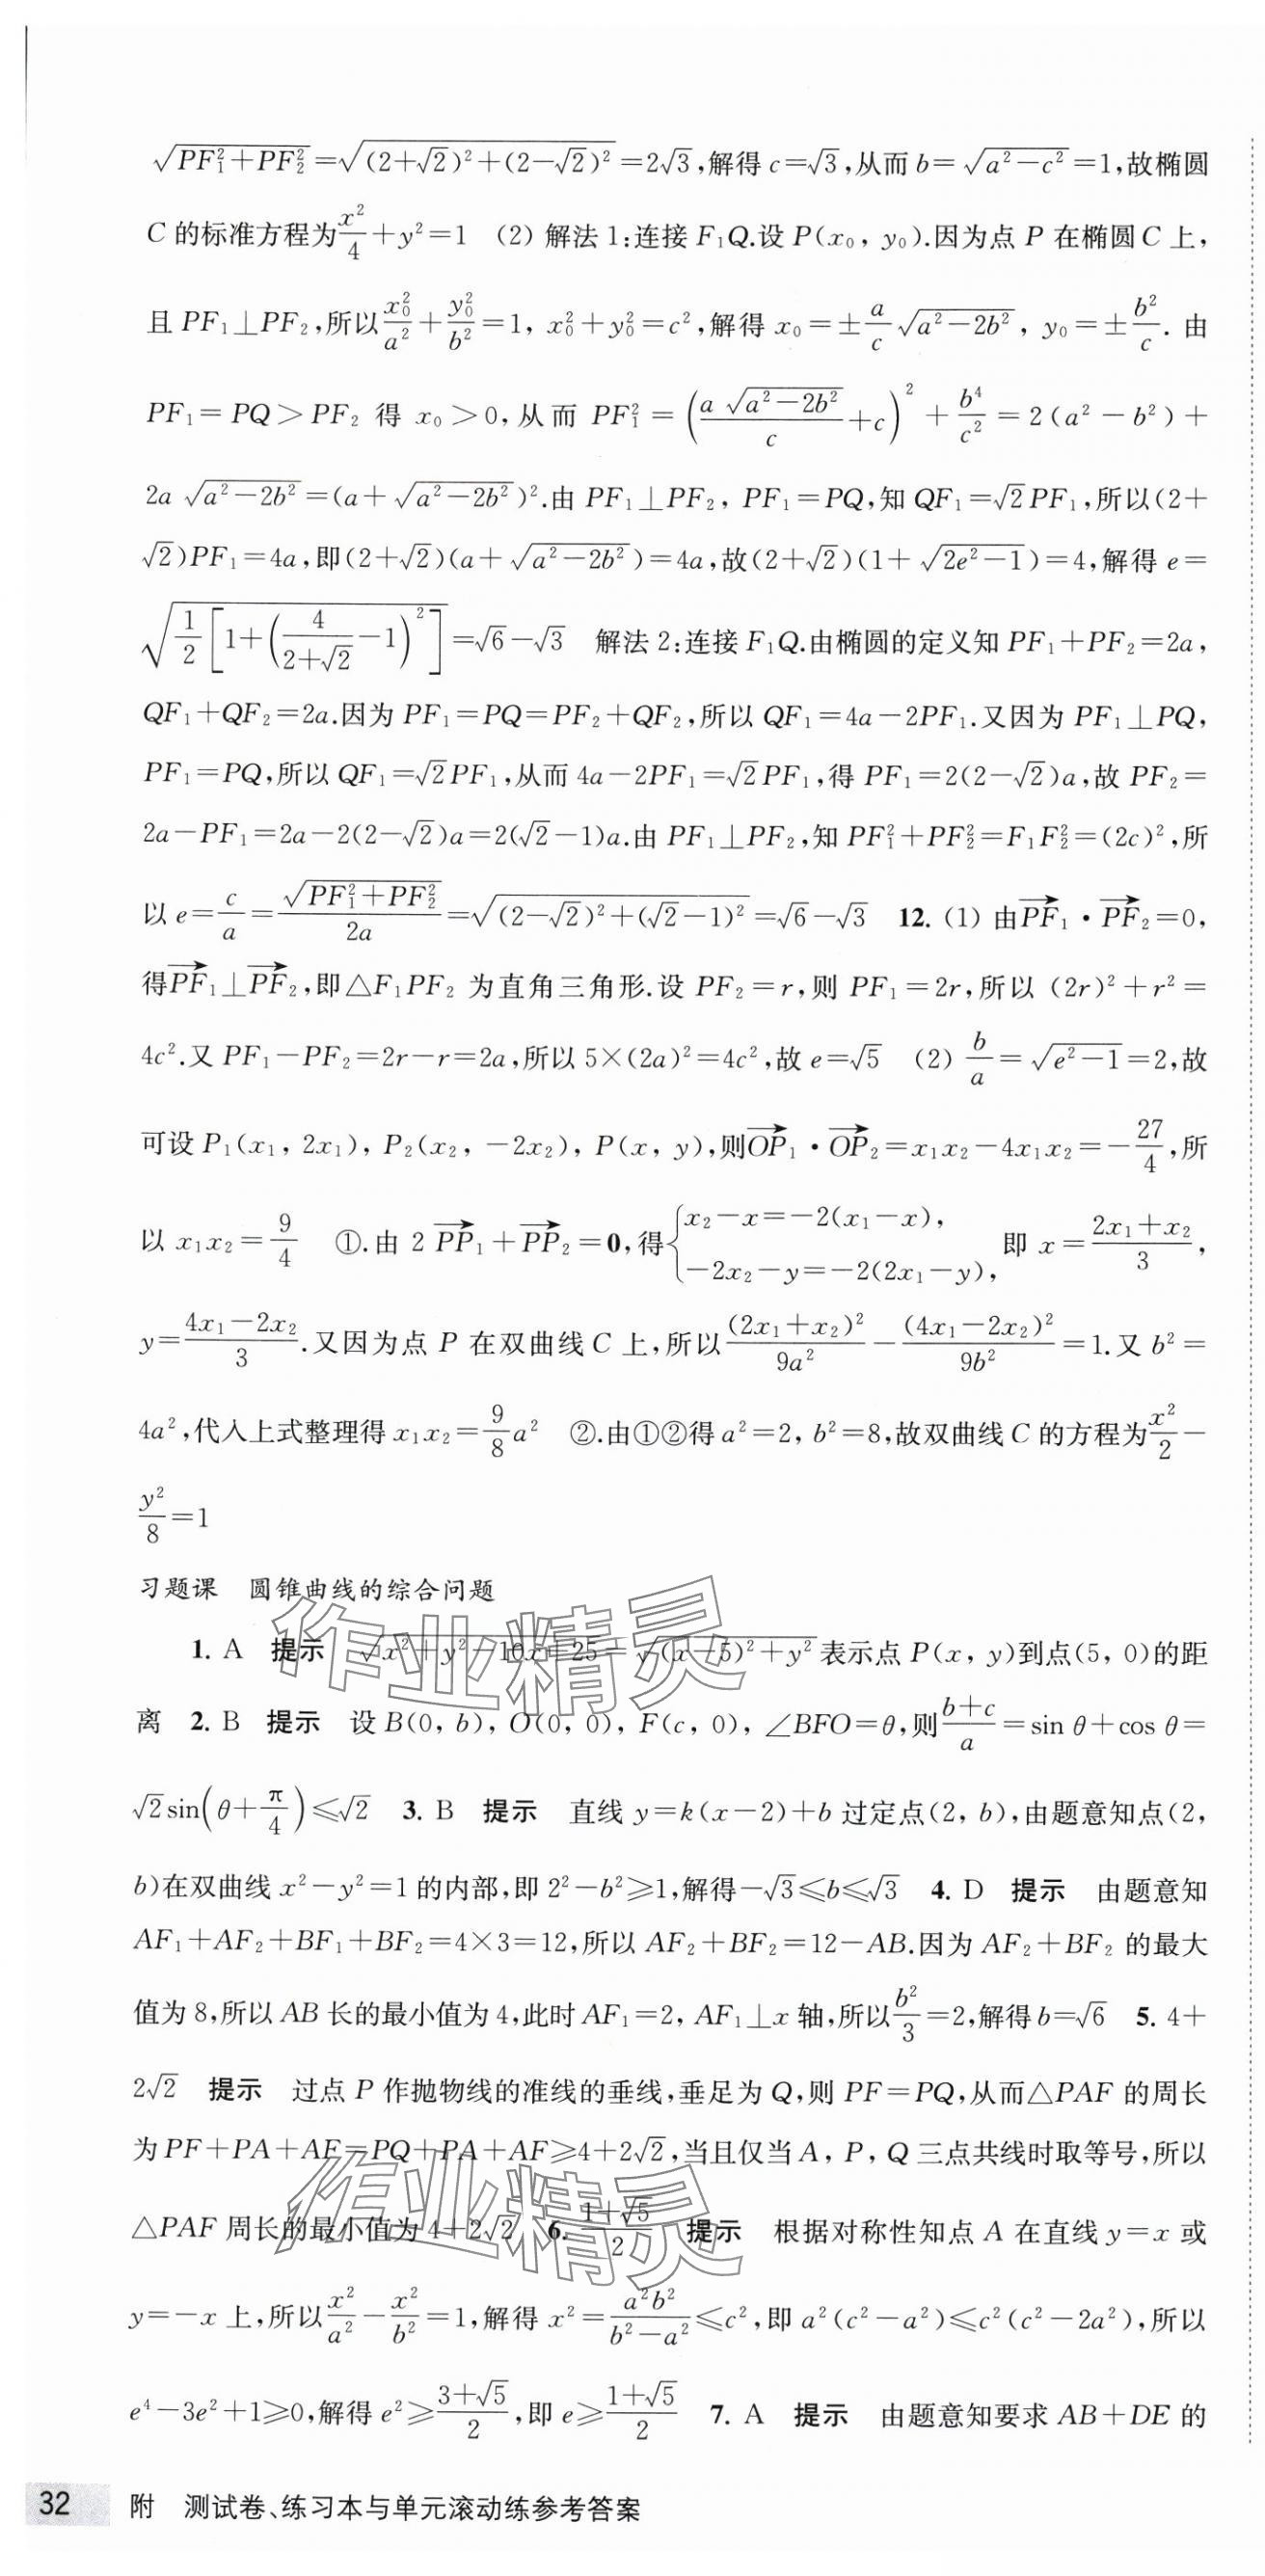 √(PF₁²+PF₂²)=√((2+√2)²+(2-√2)²)=2√3,解得 c=√3,从而 b=√(a²-c²)=1,故椭圆
C 的标准方程为x²/4+y²=1 (2) 解法 1:连接 F₁Q.设 P(x₀, y₀).因为点 P 在椭圆 C 上,
且 PF₁⊥PF₂,所以x₀²/a²+y₀²/b²=1, x₀²+y₀²=c²,解得 x₀=±(a/c)√(a²-2b²), y₀=±b²/c. 由
PF₁=PQ>PF₂ 得 x₀>0,从而 PF₁²=(a√(a²-2b²)/c+c)²+b⁴/c²=2(a²-b²)+
2a√(a²-2b²)=(a+√(a²-2b²))².由 PF₁⊥PF₂, PF₁=PQ,知 QF₁=√2PF₁,所以(2+
√2)PF₁=4a,即(2+√2)(a+√(a²-2b²))=4a,故(2+√2)(1+√(2e²-1))=4,解得 e=
√(1/2[1+(4/(2+√2)-1)²])=√6-√3 解法 2:连接 F₁Q.由椭圆的定义知 PF₁+PF₂=2a,
QF₁+QF₂=2a.因为 PF₁=PQ=PF₂+QF₂,所以 QF₁=4a-2PF₁.又因为 PF₁⊥PQ,
PF₁=PQ,所以 QF₁=√2PF₁,从而 4a-2PF₁=√2PF₁,得 PF₁=2(2-√2)a,故 PF₂=
2a-PF₁=2a-2(2-√2)a=2(√2-1)a.由 PF₁⊥PF₂,知 PF₁²+PF₂²=F₁F₂²=(2c)²,所
以 e=c/a=√(PF₁²+PF₂²)/2a=√((2-√2)²+(√2-1)²)=√6-√3 12. (1) 由→PF₁·→PF₂=0,
得→PF₁⊥→PF₂,即△F₁PF₂ 为直角三角形.设 PF₂=r,则 PF₁=2r,所以 (2r)²+r²=
4c².又 PF₁-PF₂=2r-r=2a,所以 5×(2a)²=4c²,故 e=√5 (2) b/a=√(e²-1)=2,故
可设 P₁(x₁, 2x₁), P₂(x₂, -2x₂), P(x, y),则→OP₁·→OP₂=x₁x₂-4x₁x₂=-27/4,所
以 x₁x₂=9/4 ①.由 2→PP₁+→PP₂=0,得{x₂-x=-2(x₁-x), -2x₂-y=-2(2x₁-y), 即 x=(2x₁+x₂)/3,
y=(4x₁-2x₂)/3.又因为点 P 在双曲线 C 上,所以(2x₁+x₂)²/9a²-(4x₁-2x₂)²/9b²=1.又 b²=
4a²,代入上式整理得 x₁x₂=(9/8)a² ②.由①②得 a²=2, b²=8,故双曲线 C 的方程为x²/2-
y²/8=1
习题课 圆锥曲线的综合问题
1. A 提示 √(x²+y²-10x+25)=√((x-5)²+y²)表示点 P(x, y)到点(5, 0)的距
离 2. B 提示 设 B(0, b), O(0, 0), F(c, 0), ∠BFO=θ,则(b+c)/a=sin θ+cos θ=
√2sin(θ+π/4)≤√2 3. B 提示 直线 y=k(x-2)+b 过定点(2, b),由题意知点(2,
b)在双曲线 x²-y²=1 的内部,即 2²-b²≥1,解得-√3≤b≤√3 4. D 提示 由题意知
AF₁+AF₂+BF₁+BF₂=4×3=12,所以 AF₂+BF₂=12-AB.因为 AF₂+BF₂ 的最大
值为 8,所以 AB 长的最小值为 4,此时 AF₁=2, AF₁⊥x 轴,所以b²/3=2,解得 b=√6 5. 4+
2√2 提示 过点 P 作抛物线的准线的垂线,垂足为 Q,则 PF=PQ,从而△PAF 的周长
为 PF+PA+AF=PQ+PA+AF≥4+2√2,当且仅当 A, P, Q 三点共线时取等号,所以
△PAF 周长的最小值为 4+2√2 6. (1+√5)/2 提示 根据对称性知点 A 在直线 y=x 或
y=-x 上,所以x²/a²-x²/b²=1,解得 x²=a²b²/(b²-a²)≤c²,即 a²(c²-a²)≤c²(c²-2a²),所以
e⁴-3e²+1≥0,解得 e²≥(3+√5)/2,即 e≥(1+√5)/2 7. A 提示 由题意知要求 AB+DE 的
32 附 测试卷、练习本与单元滚动练参考答案
作业精灵
作业精灵